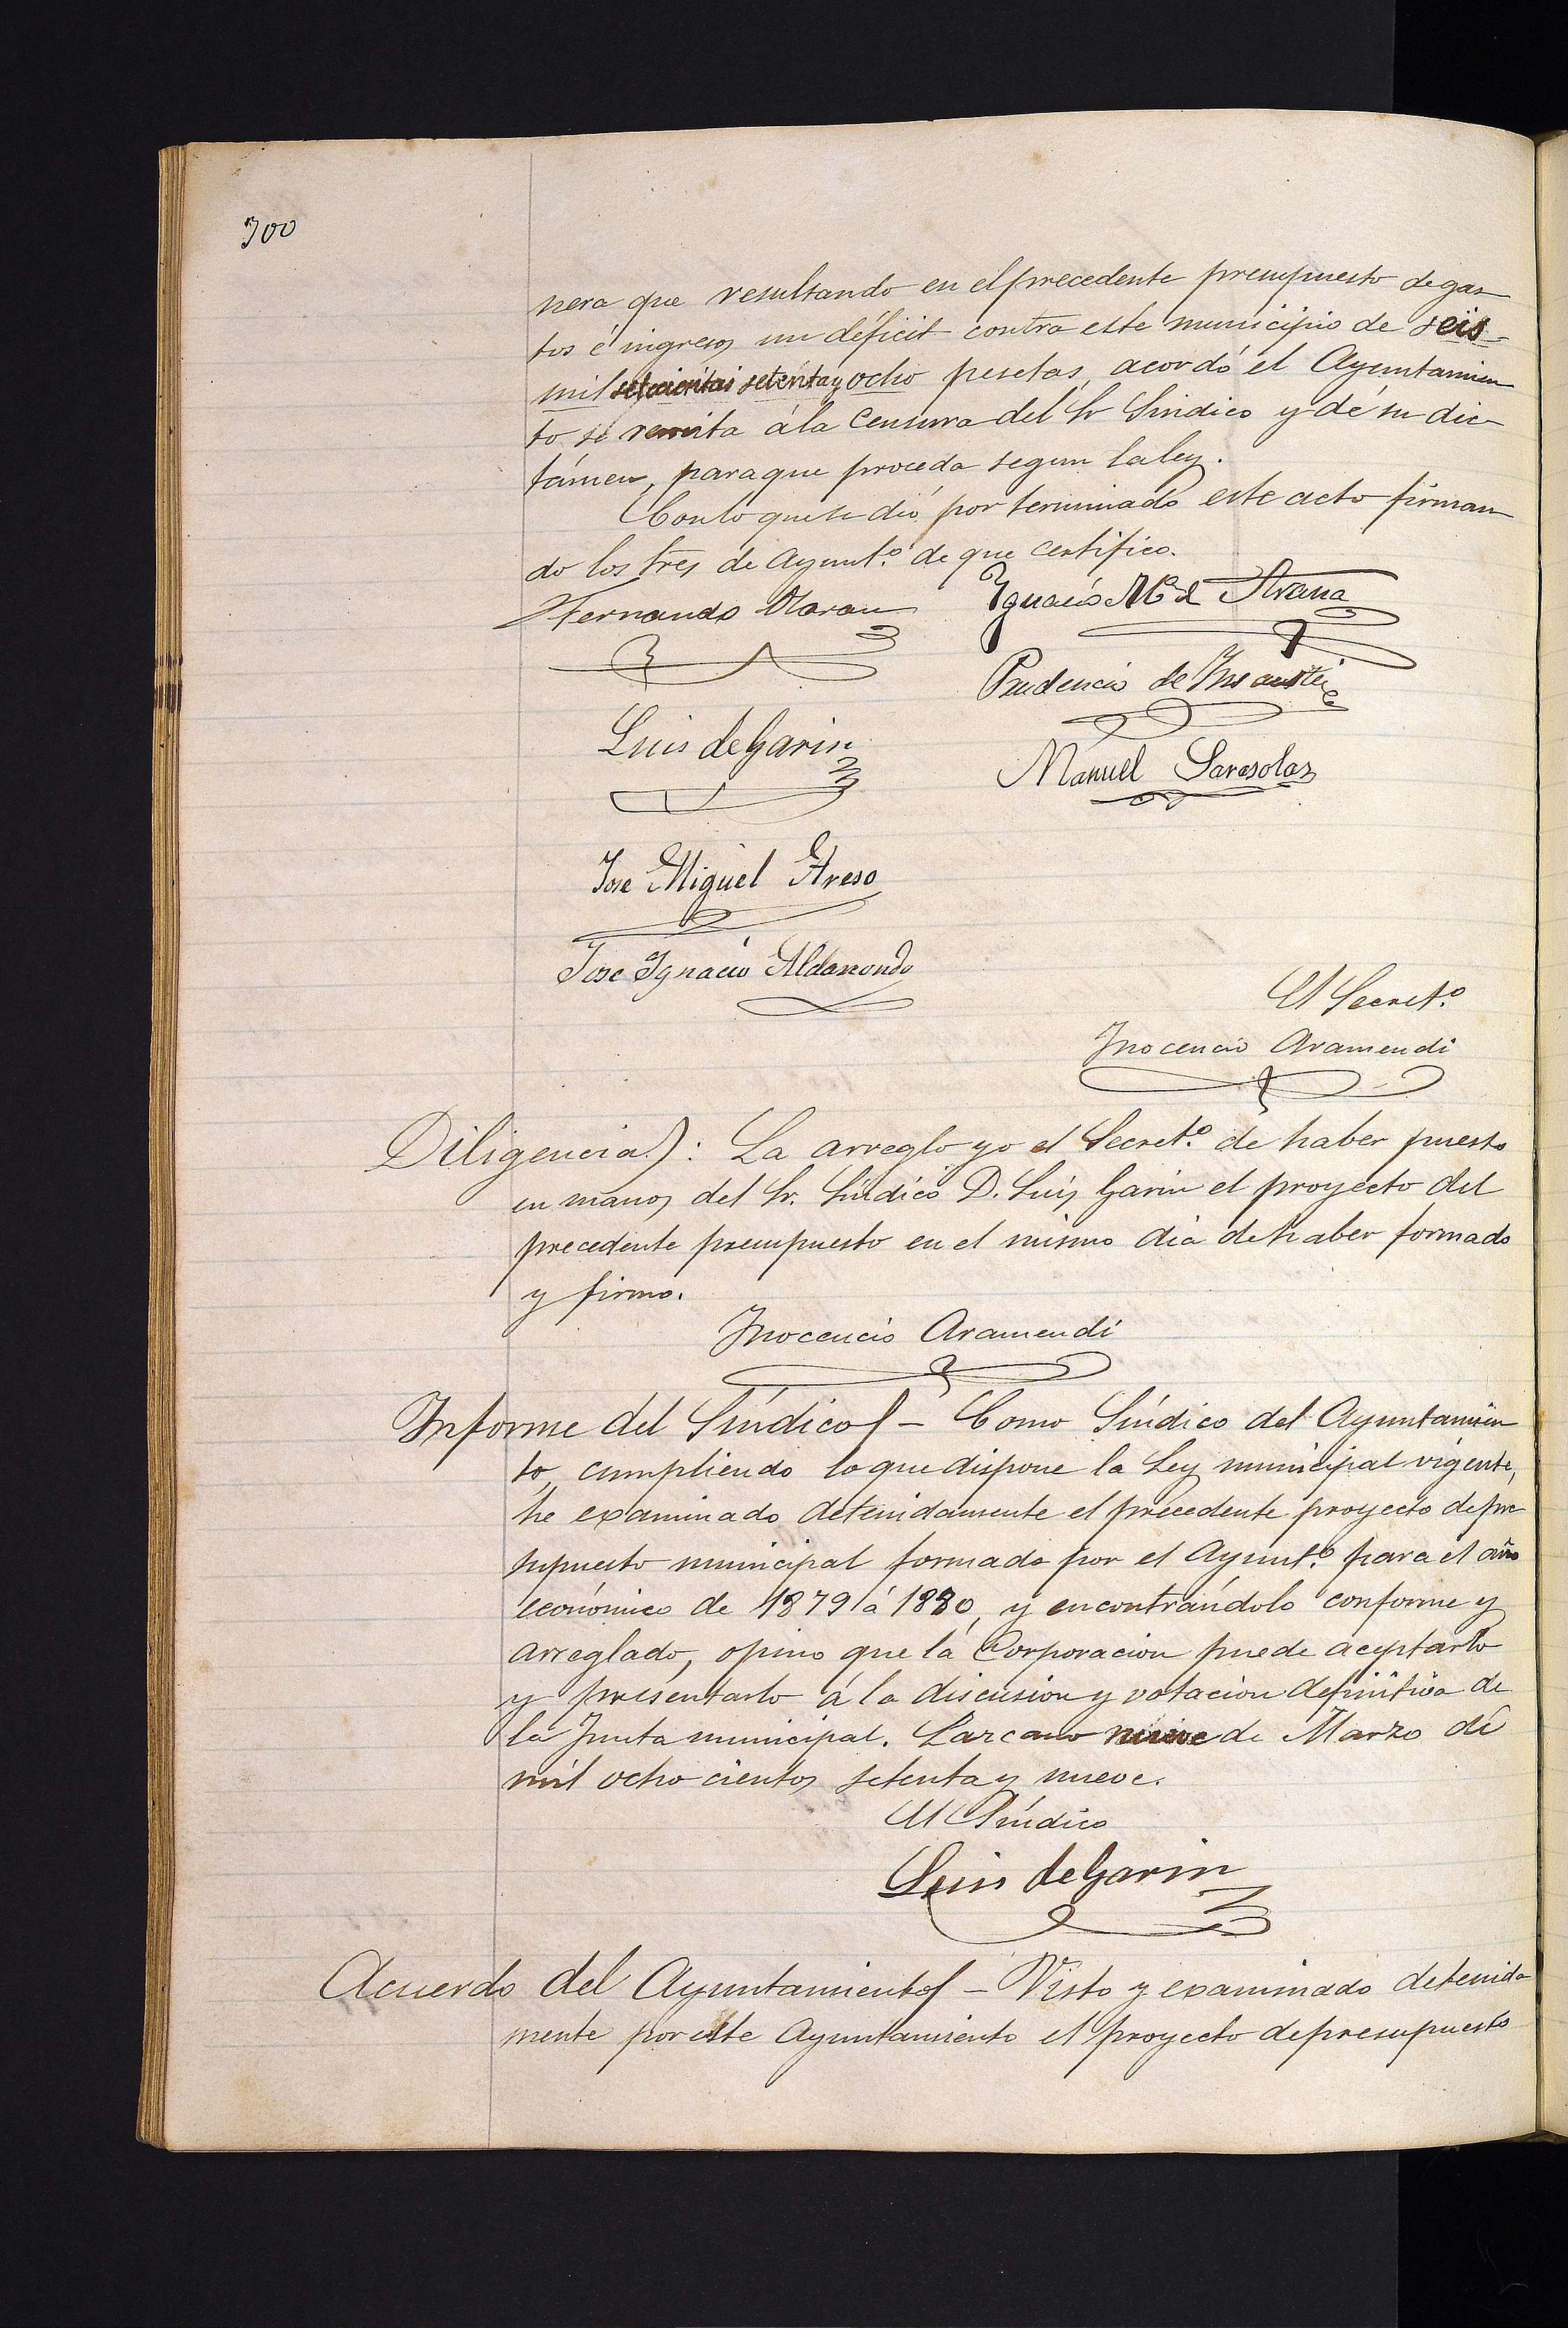 300
nera que resultando en el precedente presupuesto de gas-
tos é ingresos un déficit contra este municipio de seis
mil setecientas setenta y ocho pesetas, acordó el Ayuntamien
to se remita á la Censura del Sr Sindico y dé su dic-
támen, para que proceda segun la ley.
Con lo que se dió por terminado este acto firman
do los Sres de Ayunt.º de que certifico.
Fernando Ignacio M.ª de Arana
Prudencio de Insausti
Luis de Garin
Manuel Sarasola
Jose Miguel Areso
Jose Ignacio Aldasoro
El Secret.º
Inocencio Aramendi
Diligencia): La arreglo yo el Secret.º de haber puesto
en manos del Sr. Síndico D. Luis Garin el proyecto del
precedente presupuesto en el mismo dia de haber formado
y firmo.
Inocencio Aramendi
Informe del Síndico - Como Síndico del Ayuntamien
to, cumpliendo lo que dispone la Ley municipal vigente,
he examinado detenidamente el precedente proyecto de pre
supuesto municipal formado por el Ayunt.º para el año
económico de 1879 á 1880, y encontrándolo conforme y
arreglado, opino que la Corporacion puede aceptarlo
y presentarlo á la discusion y votacion definitiva de
la Junta municipal. Lazcano nueve de Marzo de
mil ochocientos setenta y nueve.
El Síndico
Luis de Garin
Acuerdo del Ayuntamiento - Visto y examinado detenida
mente por este Ayuntamiento el proyecto de presupuesto